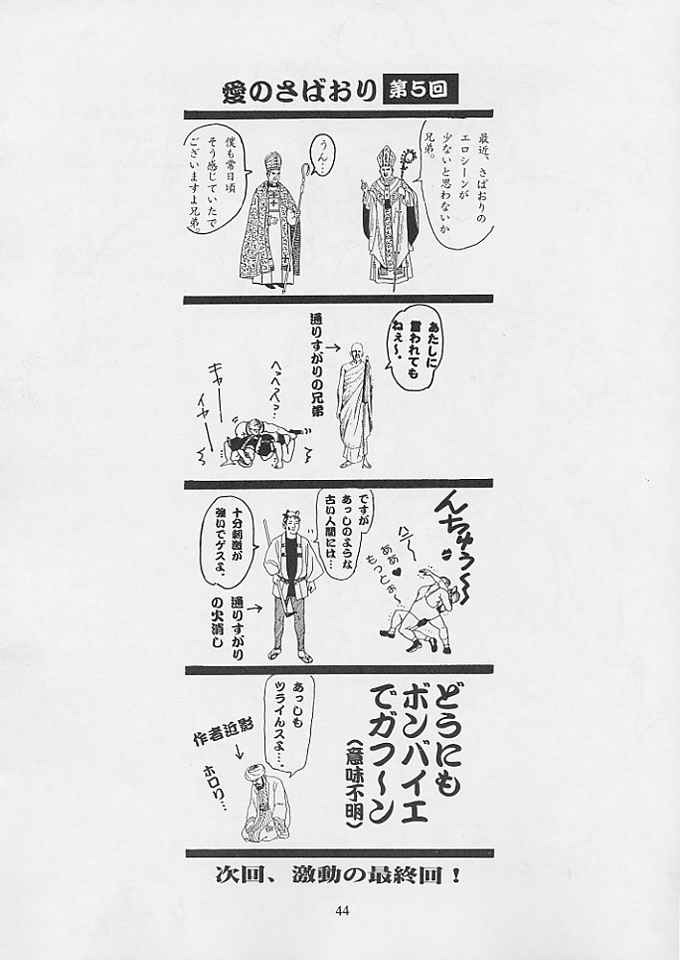 愛のさばおり 第5回
最近、さばおりの
エロシーンが
少ないと思わないか
兄弟。
うん…
僕も常日頃
そう感じていたで
ございますよ兄弟。
あたしに
言われても
ねぇ〜。
通りすがりの兄弟
へっへっへっ…
キャーー
イヤーー
んちゅう〜
ハァ〜
ああ♥
もっとぉ〜
ですが
あっしのような
古い人間には…
十分刺激が
強いでゲスよ。
通りすがり
の火消し
どうにも
ボンバイエ
でガフ〜ン
(意味不明)
あっしも
ツライんスよ…。
作者近影
ホロリ…
次回、激動の最終回!
44